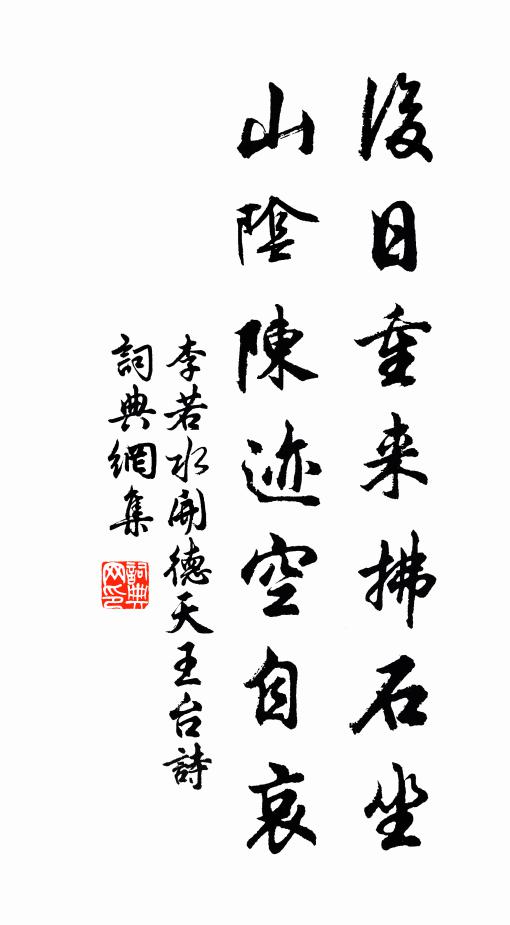 後日重来拂石坐
山陰陳迹空自哀
李若水開德天王台詩
詞典網集
詞典网印